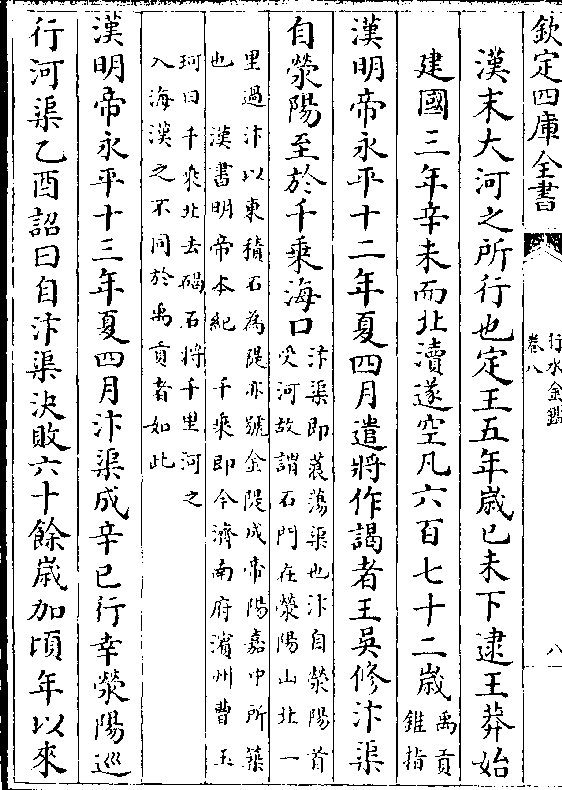 欽定四庫全書
行水金鑑
卷八
八
漢末大河之所行也定王五年歲己未下逮王莽始
建國三年辛未而北瀆遂空凡六百七十二歲
禹貢
錐指
漢明帝永平十二年夏四月遣將作謁者王吳修汴渠
自滎陽至於千乘海口
汴渠即莨蕩渠也汴自滎陽首
受河故謂石門在滎陽山北一
里過汴以東積石為隄亦號金隄成帝陽嘉中所築
也　漢書明帝本紀　千乘即今濟南府濱州曹玉
珂曰千乘北去碣石將千里河之
入海漢之不同於禹貢者如此
漢明帝永平十三年夏四月汴渠成辛巳行幸滎陽巡
行河渠乙酉詔曰自汴渠決敗六十餘歲加頃年以來